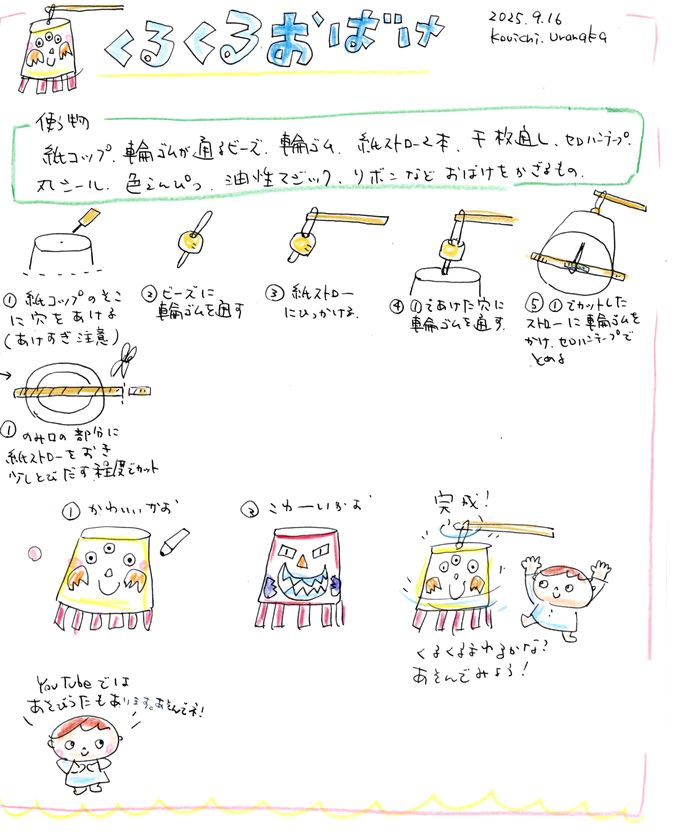 くるくるおばけ
2025.9.16
Kouichi. Uranaka
使う物
紙コップ、輪ゴムが通るビーズ、輪ゴム、紙ストロー2本、千枚通し、セロハンテープ、
丸シール、色えんぴつ、油性マジック、リボンなど おばけをかざるもの。
① 紙コップのそこ
に穴をあける
(あけすぎ注意)
② ビーズに
輪ゴムを通す
③ 紙ストロー
にひっかける。
④ ①であけた穴に
輪ゴムを通す。
⑤ ①でカットした
ストローに輪ゴムを
かけ、セロハンテープで
とめる
① のみ口の部分に
紙ストローをおき
少しとびだす程度でカット
① かわいいかお
② こわーいかお
完成!
くるくるまわるかな?
あそんでみよう!
YouTubeでは
あそびうたもあります。あそんでネ!